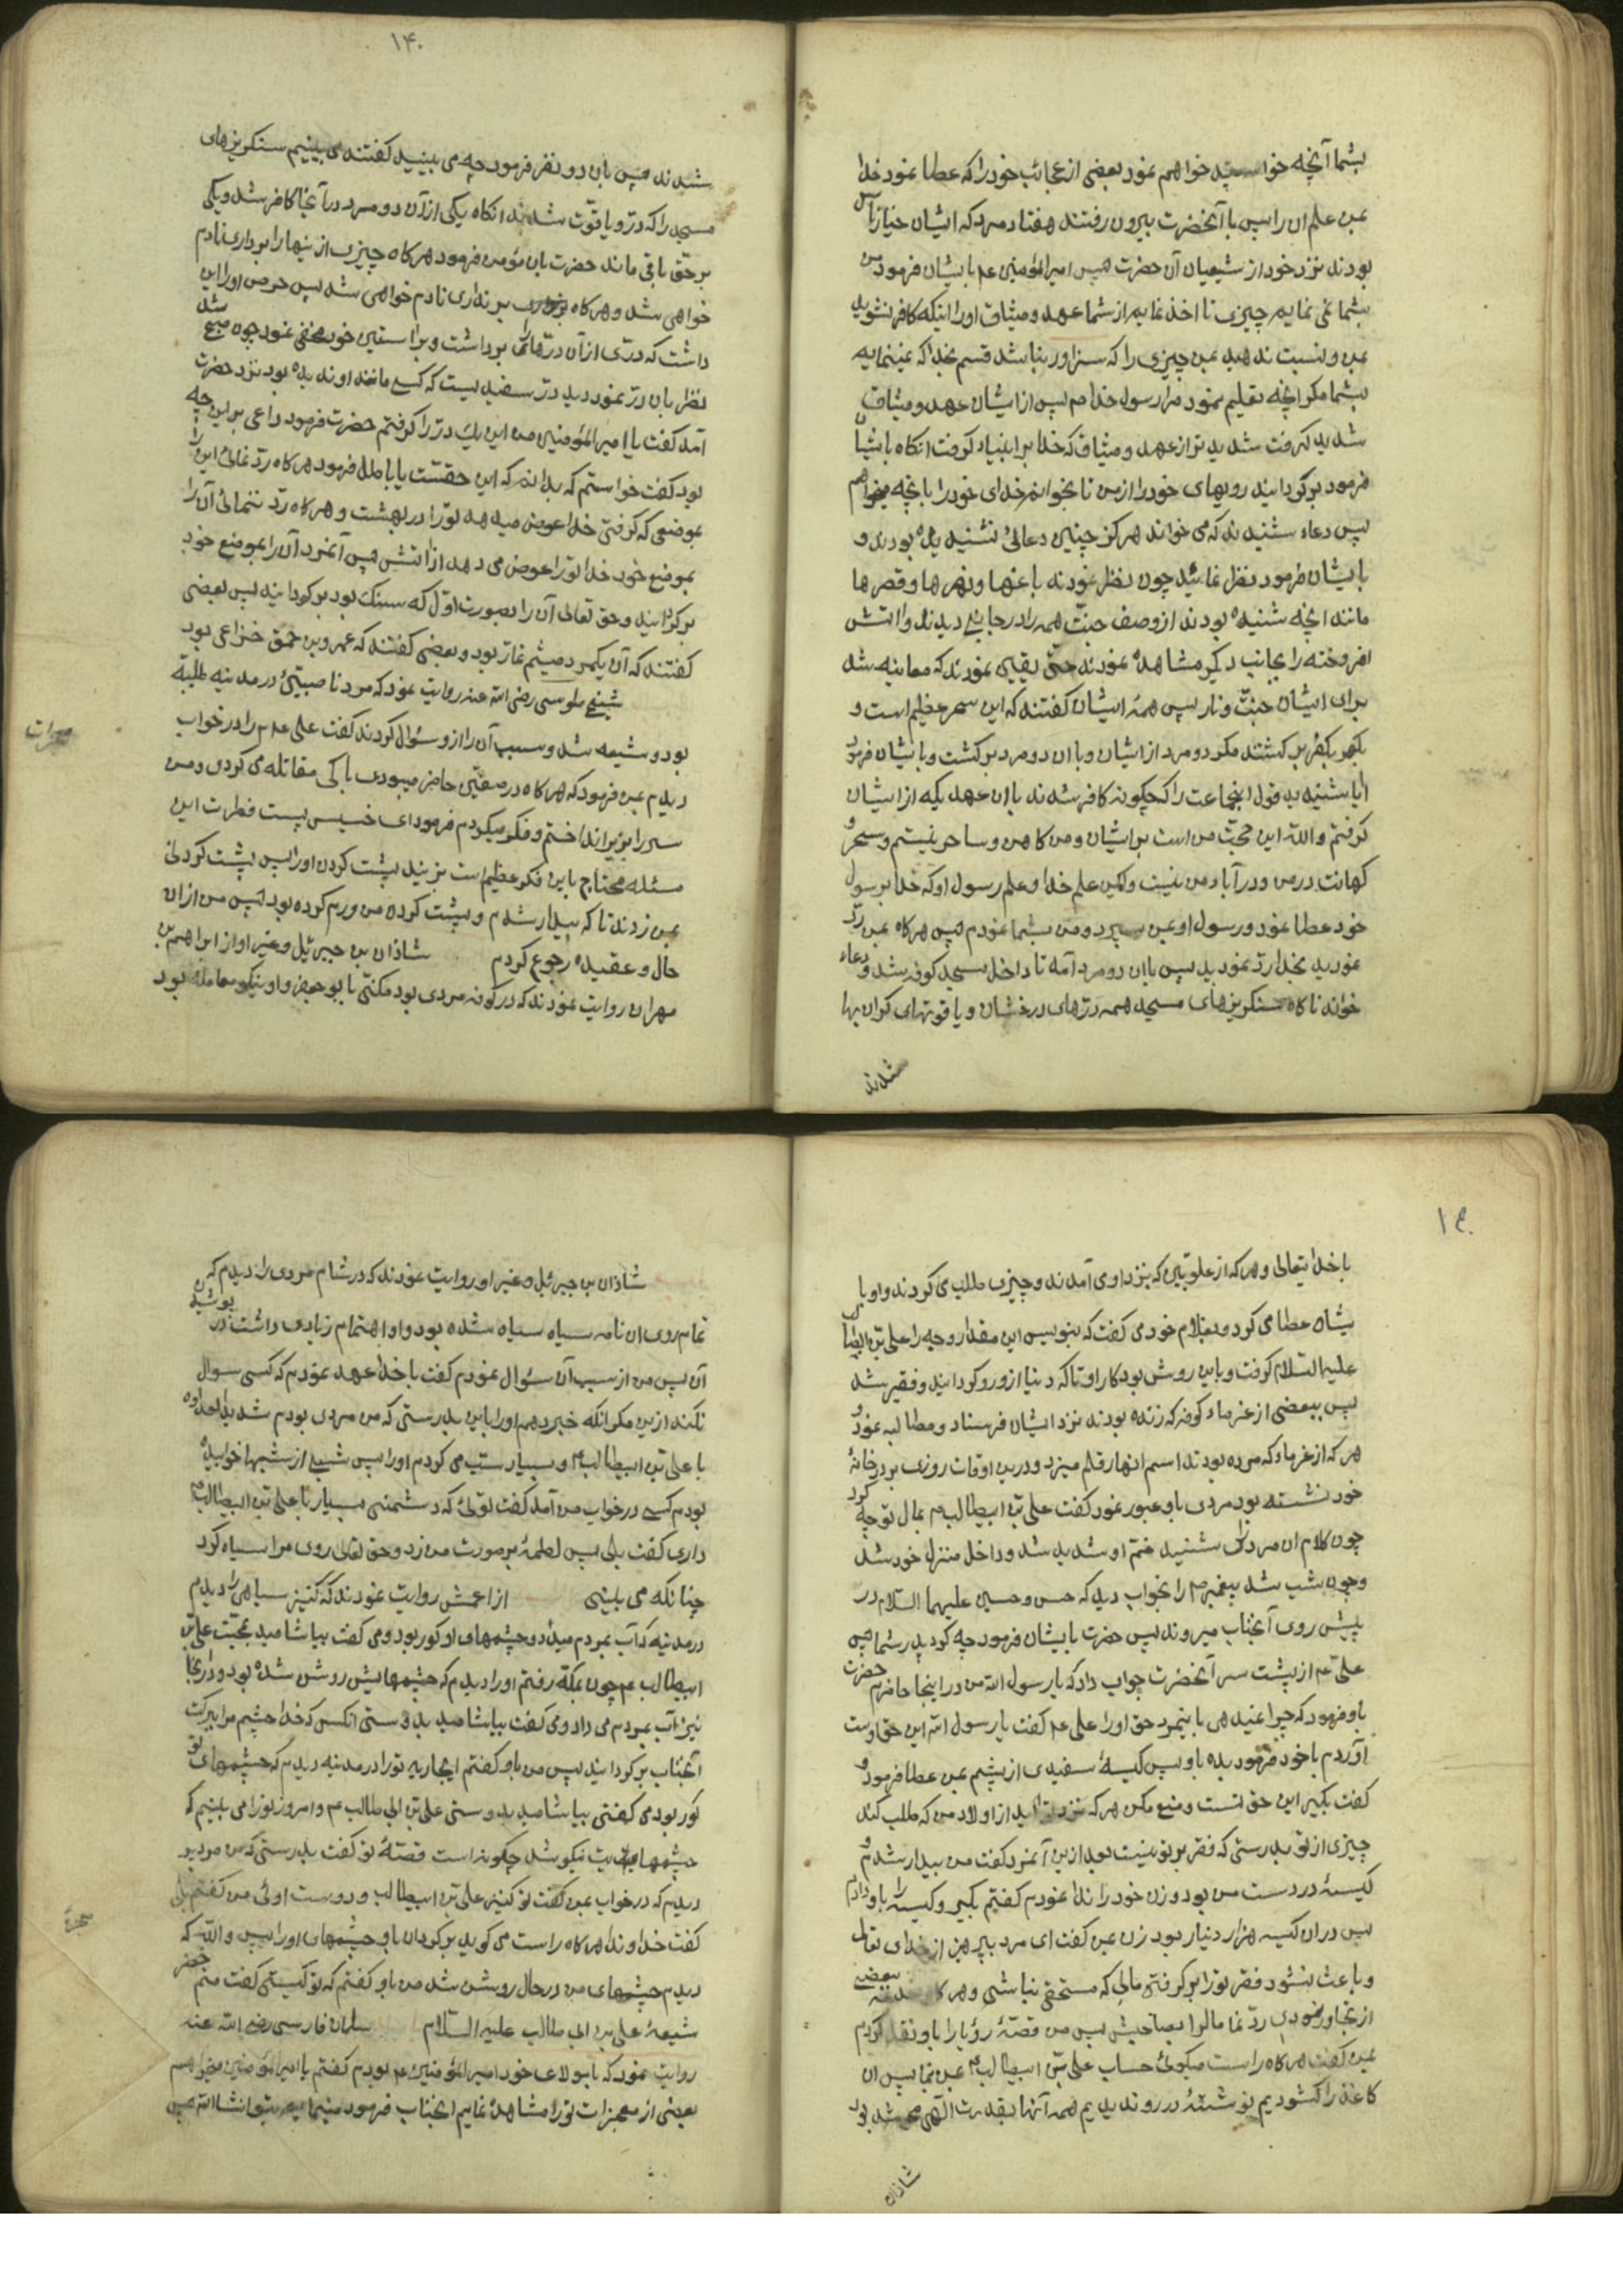 بشما آنچه خواستید خواهم نمود بعضی از عجائب خود را که عطا نمود خدا
بمن علم ان را پس با آنحضرت بیرون رفتند هفتاد مرد که ایشان خیار ناس
بودند نزد خود از شیعیان آن حضرت پس امیرالمؤمنین عم بایشان فرمود من
بشما نمی نمایم چیزی تا اخذ نمایم از شما عهد و میثاق او را اینکه کافر نشوید
بمن و نسبت ندهید بمن چیزی را که سزاور نباشد قسم بخدا که نمینمایم
بشما مگر انچه تعلیم نمود مرا رسول خدا م پس از ایشان عهد و میثاق
شدید گرفت شدید تر از عهد و میثاق که خدا بر انبیاء گرفت انگاه بایشان
فرمود برگردانید رویهای خود را از من تا بخوانم خدای خود را بانچه میخواهم
پس دعاء شنیدند که می خواند هرگز چنین دعائی نشنیده بودند و
بایشان فرمود نظر نمائید چون نظر نمودند باغها و نهرها و قصرها
مانند انچه شنیده بودند از وصف جنّت همه را در جانبی دیدند و اتش
افروخته را بجانب دیگر مشاهده نمودند حتّی یقین نمودند که معاینه شد
برای ایشان جنّت و نار پس همهٔ ایشان گفتند که این سحر عظیم است و
بکفر برگشتند مگر دو مرد از ایشان و با ان دو مرد برگشت و بایشان فرمود
ایا شنیدید قول اینجماعت را که چگونه کافر شدند با ان عهد یکه از ایشان
گرفتم واللّه این حجّت من است بر ایشان و من کاهن و ساحر نیستم و سحر و
کهانت در من و در آباء من نیست ولکن علم خدا و علم رسول او که خدا برسول
خود عطا نمود و رسول او بمن سپرد و من بشما نمودم پس هرگاه بمن ردّ
نمودید بخدا ردّ نمودید پس با ان دو مرد آمد تا داخل مسجد کوفه شد و دعاء
خواند ناگاه سنگریزهای مسجد همه درّهای درخشان و یاقوتهای گران بها
شدند
۱۴۰
شدند پس بان دو نفر فرمود چه می بینید گفتند می بینیم سنگریزهای
مسجد را که درّ و یاقوت شدند انگاه یکی از آن دو مرد در آنجا کافر شد و یکی
بر حق باقی ماند حضرت بان مؤمن فرمود هرگاه چیزی از ینها را برداری نادم
خواهی شد و هرگاه بر نداری نادم خواهی شد پس حرص او را این
داشت که درّی از آن درّها را برداشت و بر استین خود مخفی نمود چون صبح شد
نظر بان درّ نمود دید درّ سفید یست که کسی مانند او ندیده بود نزد حضرت
آمد گفت یا امیرالمؤمنین من این یک درّ را گرفتم حضرت فرمود داعی بر این چه
بود گفت خواستم که بدانم که این حقست یا باطل فرمود هرگاه ردّ نمائی این را
بموضعی که گرفتی خدا عوض میدهد تو را در بهشت و هرگاه ردّ ننمائی آن را
بموضع خود خدا تو را عوض می دهد از اتش پس آنمرد آن را بموضع خود
برگردانید و حق تعالی آن را بصورت اوّل که سنگ بود برگردانید پس بعضی
گفتند که آن یکمرد میثم تمار بود و بعضی گفتند که عمرو بن حمق خزاعی بود
شیخ طوسی رضی اللّه عنه روایت نمود که مرد ناصبیئ در مدینه طیبه
بود و شیعه شد و سبب آن را از و سئوال کردند گفت علی عم را در خواب
دیدم بمن فرمود که هرگاه در صفین حاضر میبودی با کی مقاتله می کردی و من
سر را بزیر انداختم و فکر میکردم فرمود ای خسیس پست فطرت این
مسئله محتاج باین فکر عظیم است بزنید پشت گردن او را پس پشت گردنی
بمن زدند تا که بیدار شدم و پشت گردن من ورم کرده بود پس من از ان
حال و عقیده رجوع کردم شاذان بن جبرئیل و غیر او از ابراهیم بن
مهران روایت نمودند که در کوفه مردی بود مکنّی بابو جعفر و او نیکو معامله بود
۱۴۰
با خدا یتعالی و هر که از علویین که بنزد او می آمدند و چیزی طلب می کردند و او با
یشان عطا می کرد و بغلام خود می گفت که بنویس این مقدار وجه را علی بن ابیطالب
علیه السّلام گرفت و باین روش بود کار او تا که دنیا از و رو گردانید و فقیر شد
پس ببعضی از غرماء کوفه که زنده بودند نزد ایشان فرستاد و مطالبه نمود و
هر که از غرماء که مرده بودند اسم انها را قلم میزد و در ین اوقات روزی بر در خانهٔ
خود نشسته بود مردی باو عبور نمود گفت علی بن ابیطالب م بمال تو چه کرد
چون کلام ان مرد را شنید غمّ او شدید شد و داخل منزل خود شد
و چون شب شد پیغمبر م را بخواب دید که حسن و حسین علیهما السّلام در
پیش روی آنجناب میروند پس حضرت بایشان فرمود چه کرد پدر شما پس
علی عم از پشت سر آنحضرت جواب داد که یا رسول اللّه من در اینجا حاضرم حضرت
باو فرمود که چرا نمیدهی باینمرد حق او را علی عم گفت یا رسول اللّه این حق اوست
اوردم با خود فرمود بده باو پس کیسهٔ سفیدی از پشم بمن عطا فرمود و
گفت بگیر این حق تست و منع مکن هر که نزد تو اید از اولاد من که طلب کند
چیزی از تو بدرستی که فقر بر تو نیست بعد ازین آنمرد گفت من بیدار شدم و
کیسهٔ در دست من بود و زن خود را ندا نمودم گفتم بگیر و کیسه را باو دادم
پس در ان کیسه هزار دینار بود زن بمن گفت ای مرد بپرهیز از خدای تعالی
و باعث نشود فقر تو را بر گرفتن مالی که مستحق نباشی و هر گاه بعضی
از تجار نمودی ردّ نما مال را بصاحبش پس من قصّهٔ رؤیا را باو نقل کردم
بمن گفت هرگاه راست میگوئی حساب علی بن ابیطالب م بمن نما پس ان
کاغذ را گشودیم نوشتهٔ در و ندیدیم همه آنها بقدرت الهی محو شده بود
شاذان
شاذان بن جبرئیل و غیر او روایت نمودند که در شام مردی را دیدم که
تمام روی ان نامه سیاه سیاه شده بود و او اهتمام زیادی داشت در پوشیدن
آن پس من از سبب آن سئوال نمودم گفت با خدا عهد نمودم که کسی سوال
نکند ازین مگر انکه خبر دهم او را باین بدرستی که من مردی بودم شدید العداوه
با علی بن ابیطالب م و بسیار سبّ می کردم او را پس شبی از شبها خوابیده
بودم کسی در خواب من آمد گفت توئی که دشمنی بسیار با علی بن ابیطالب م
داری گفت بلی پس لطمهٔ بر صورت من زد و حق تعالی روی مرا سیاه کرد
چنانکه می بینی از اعمش روایت نمودند که کنیز سیاهی را دیدم
در مدینه که آب بمردم میداد و چشمهای او کور بود و می گفت بیاشامید بمحبّت علی بن
ابیطالب عم چون بمکّه رفتم او را دیدم که چشمهایش روشن شده بود و در آنجا
نیز آب بمردم می داد و می گفت بیاشامید بدوستی انکس که خدا چشم مرا ببرکت
آنجناب برگردانید پس من باو گفتم ایجاریه تو را در مدینه دیدم که چشمهای تو
کور بود می گفتی بیاشامید بدوستی علی بن ابی طالب عم و امروز تو را می بینیم که
چشمهایت نیکو شد چگونه است قصّهٔ تو گفت بدرستی که من مردی
دیدم که در خواب بمن گفت تو کنیز علی بن ابیطالب و دوست اوئی من گفتم بلی
گفت خداوندا هرگاه راست می گوید برگردان باو چشمهای او را پس واللّه که
دیدم چشمهای من در حال روشن شد من باو گفتم که تو کیستی گفت منم خضر
شیعهٔ علی بن ابی طالب علیه السّلام سلمان فارسی رضی اللّه عنه
روایت نمود که با مولای خود امیرالمؤمنین عم بودم گفتم یا امیرالمؤمنین میخواهم
بعضی از معجزات تو را مشاهده نمایم انجناب فرمود مینمایم بتو انشاءاللّه پس